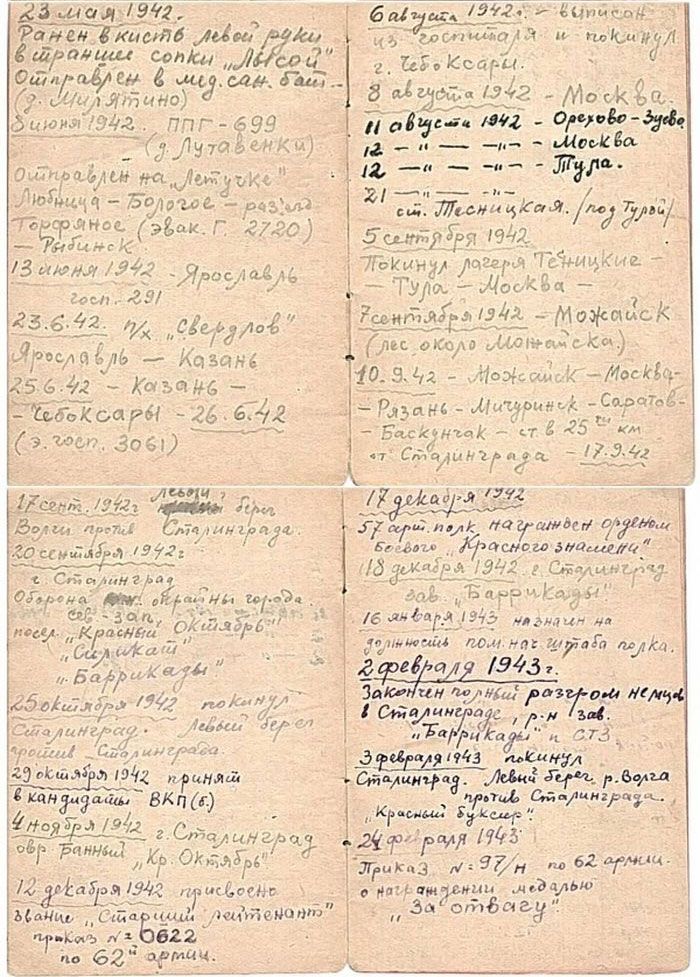 23 мая 1942.
Ранен в кисть левой руки
в траншее сопки „Лысой"
Отправлен в мед. сан. бат —
(д. Мирятино)
8 июня 1942. ППГ - 699
(д. Лутавенки)
Отправлен на „Летучке"
Любница - Бологое - разъезд
Торфяное (эвак. Г. 2720)
— Рыбинск
13 июня 1942 - Ярославль
госп. 291
23.6.42. п/х „Свердлов"
Ярославль — Казань
25.6.42 - Казань -
- Чебоксары - 26.6.42
(э. госп. 3061)
6 августа 1942г. - выписан
из госпиталя и покинул
г. Чебоксары.
8 августа 1942 - Москва.
11 августа 1942 - Орехово-Зуево
12 —"— —"— - Москва
12 —"— —"— - Тула.
21 —"— —"—
ст. Тесницкая. /под Тулой/
5 сентября 1942
Покинул лагеря Тесницкие -
- Тула - Москва -
7 сентября 1942 - Можайск
(лес около Можайска)
10.9.42 - Можайск - Москва-
- Рязань - Мичуринск - Саратов-
- Баскунчак - ст. в 25ти км
от Сталинграда - 17.9.42
17 сент. 1942г Левый берег
Волги против Сталинграда.
20 сентября 1942г
г. Сталинград
Оборона окраины города.
сев - зап.
посел. „Красный Октябрь"
„Силикат"
„Баррикады"
25 октября 1942 покинул
Сталинград. Левый берег
против Сталинграда.
29 октября 1942 принят
в кандидаты ВКП(б.)
4 ноября 1942 г. Сталинград
овр. Банный „Кр. Октябрь"
12 декабря 1942 присвоено
звание „Старший лейтенант"
приказ № 0622
по 62й армии.
17 декабря 1942
57 арт. полк награжден орденом
Боевого „Красного знамени"
18 декабря 1942 г. Сталинград
зав. „Баррикады"
16 января 1943 назначен на
должность пом. нач штаба полка.
2 февраля 1943 г.
Закончен полный разгром немцев
в Сталинграде, р-н зав.
„Баррикады" и СТЗ
3 февраля 1943 покинул
Сталинград. Левый берег р. Волга
против Сталинграда.
„Красный буксир".
24 февраля 1943
Приказ № 97/н по 62 армии.
о награждении медалью
„За отвагу".